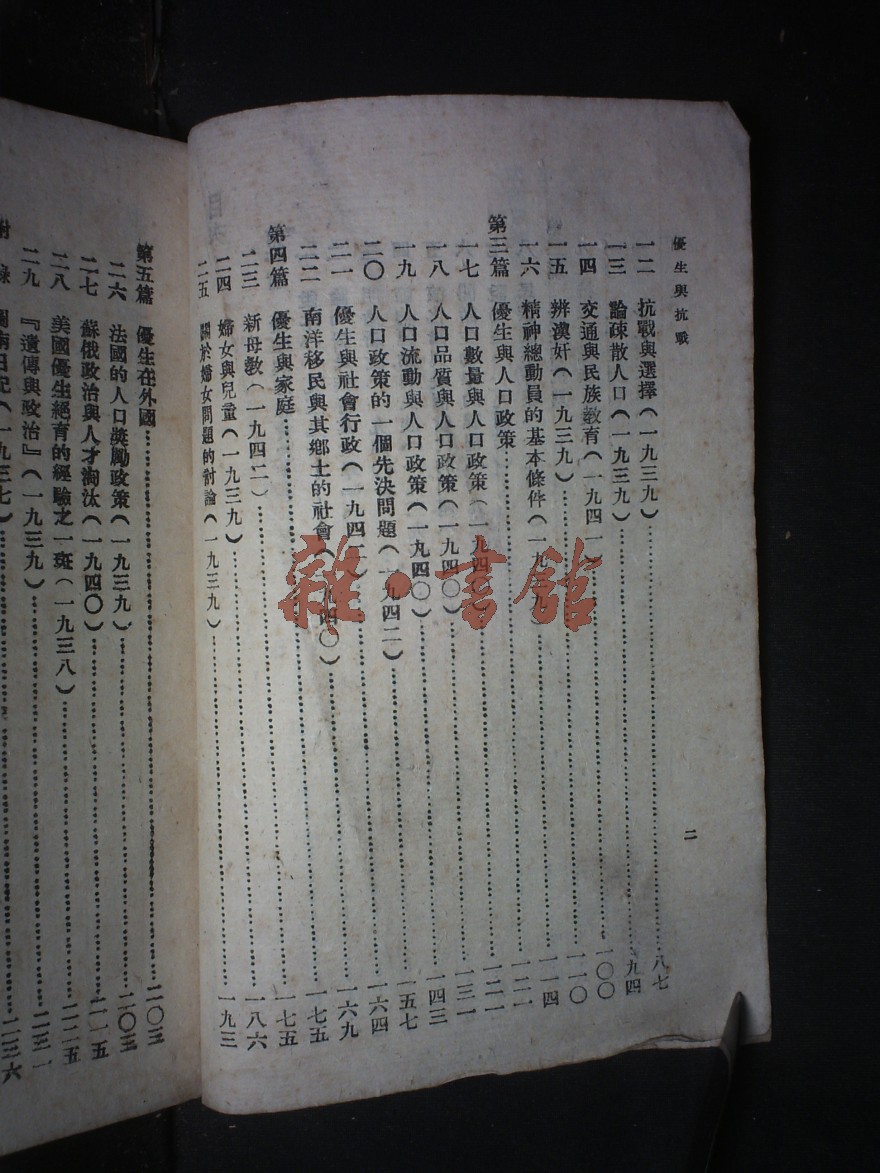 優生與抗戰
二
一二 抗戰與選擇(一九三九)……八七
一三 論疎散人口(一九三九)……九四
一四 交通與民族敎育(一九四一)……一〇〇
一五 辨漢奸(一九三九)……一一〇
一六 精神總動員的基本條件(一九三九)……一一四
第三篇 優生與人口政策……一二一
一七 人口數量與人口政策(一九四〇)……一二一
一八 人口品質與人口政策(一九四〇)……一三一
一九 人口流動與人口政策(一九四〇)……一四三
二〇 人口政策的一個先決問題(一九四二)……一五七
二一 優生與社會行政(一九四二)……一六四
二二 南洋移民與其鄉土的社會(一九四〇)……一六九
第四篇 優生與家庭……一七五
二三 新母敎(一九四二)……一七五
二四 婦女與兒童(一九三九)……一八六
二五 關於婦女問題的討論(一九三九)……一九三
第五篇 優生在外國……二〇三
二六 法國的人口獎勵政策(一九三九)……二〇三
二七 蘇俄政治與人才淘汰(一九四〇)……二一五
二八 美國優生絕育的經驗之一斑(一九三八)……二二五
二九 『遺傳與政治』(一九三九)……二三一
附錄 圖南日記(一九三七)……二三六
雜·書館